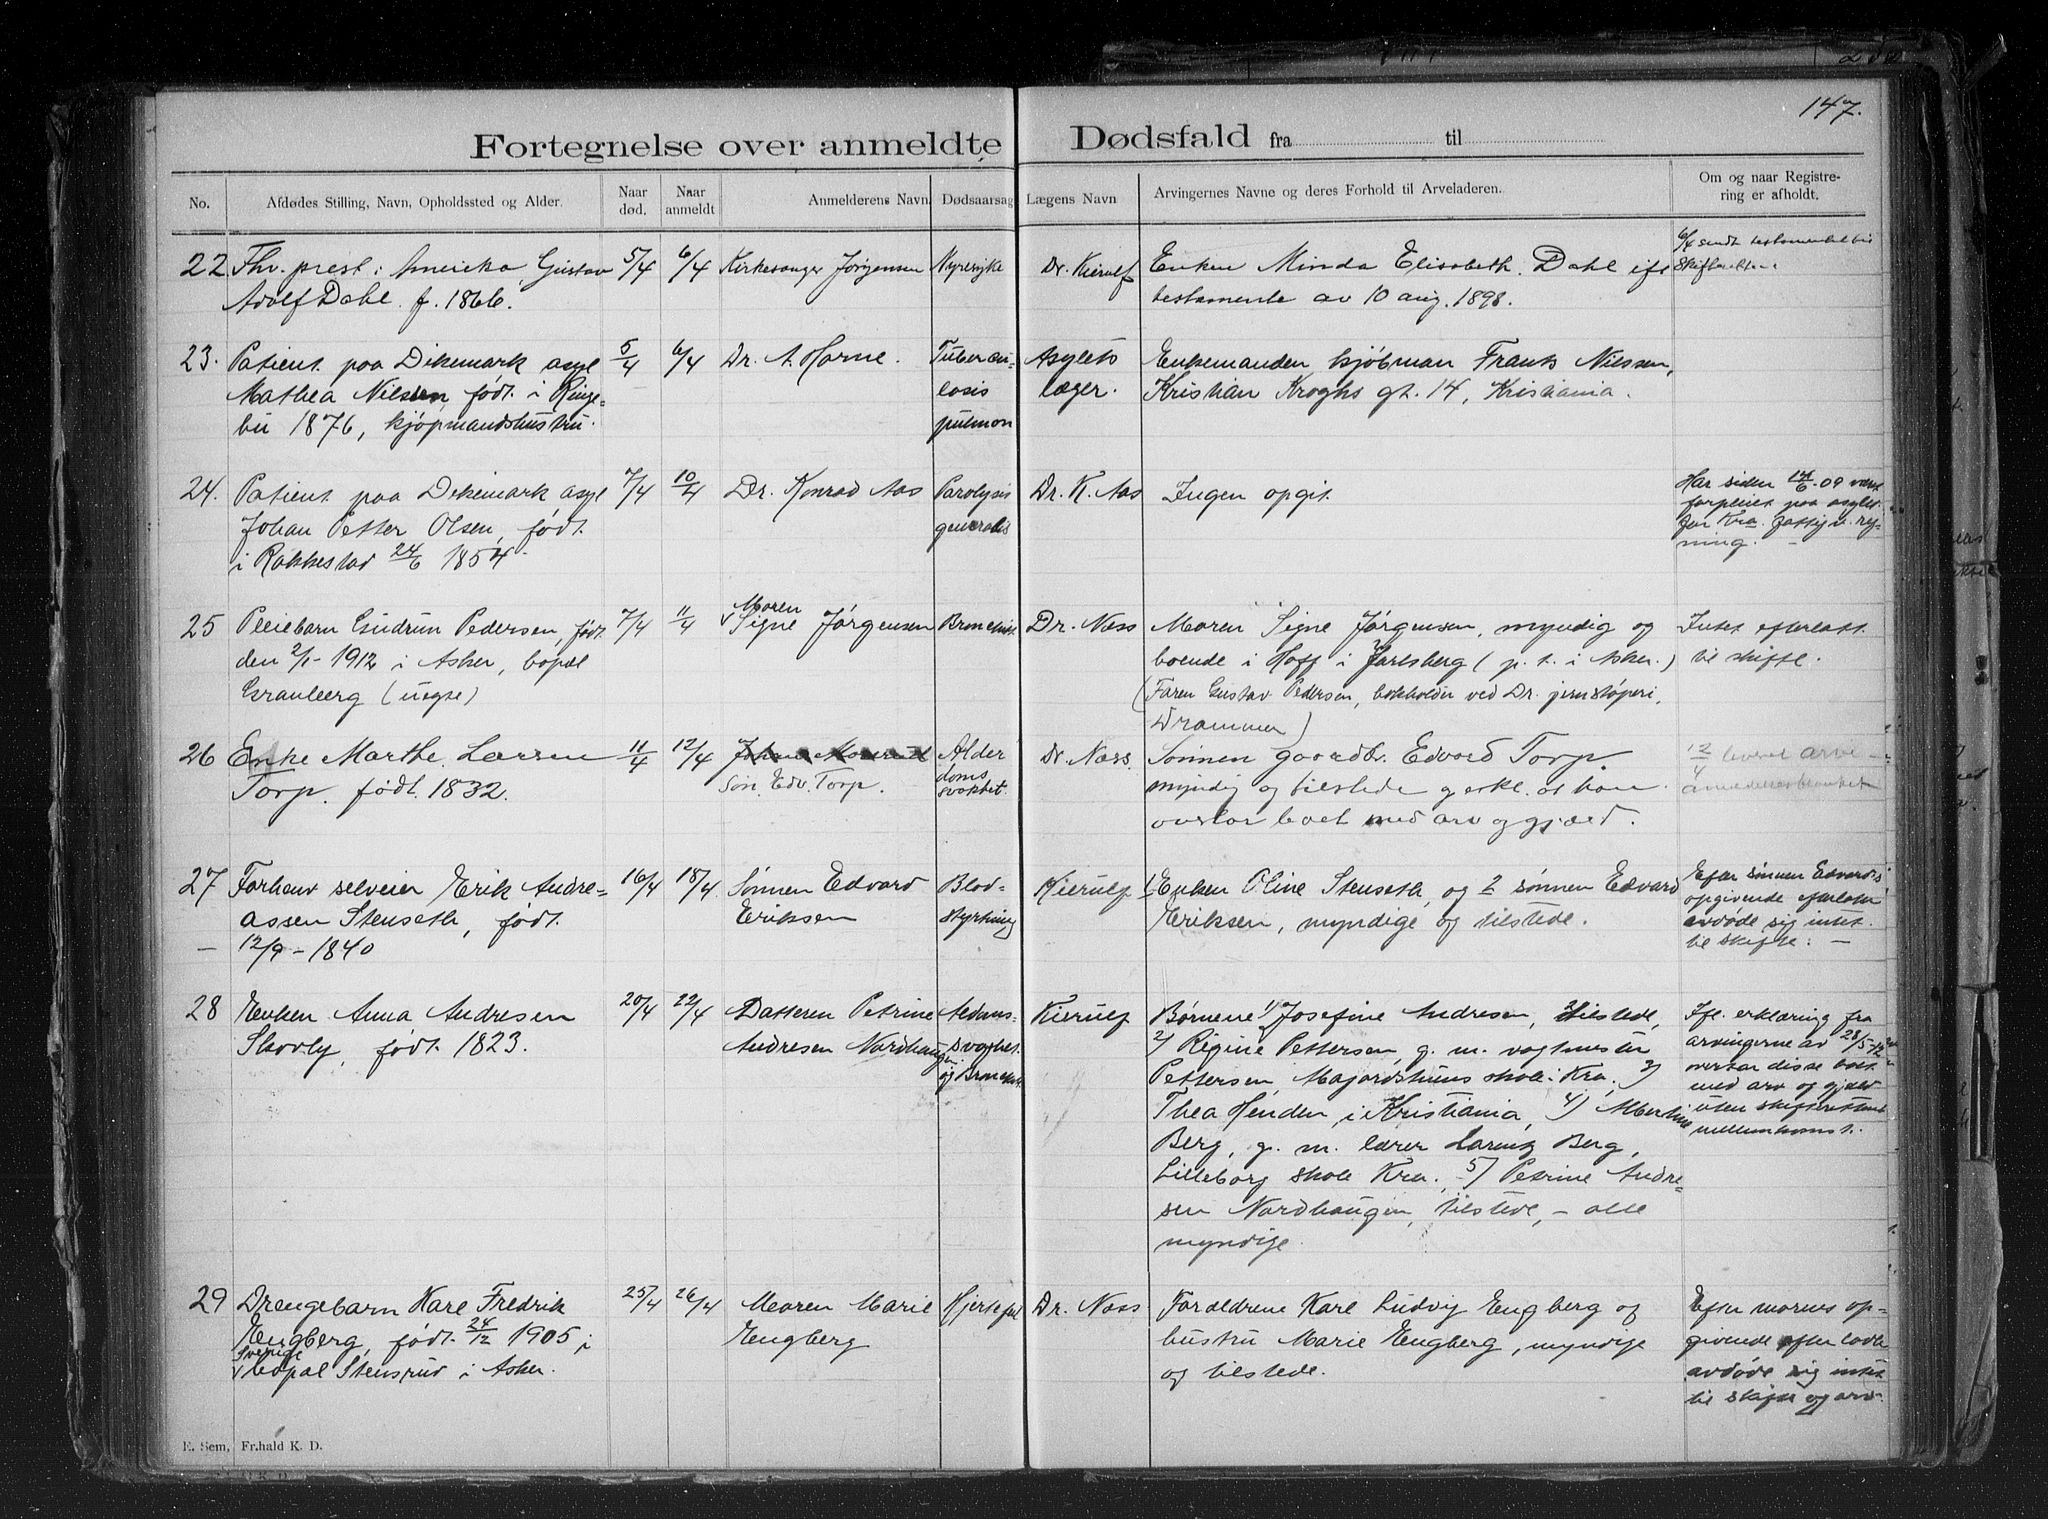 147.
Fortegnelse over anmeldte Dødsfald fra til
No.
Afdødes Stilling, Navn, Opholdssted og Alder.
Naar død.
Naar anmeldt
Anmelderens Navn
Dødsaarsag
Lægens Navn
Arvingernes Navne og deres Forhold til Arveladeren.
Om og naar Registrering er afholdt.
22 Fhv. prest i Amerika Gustav
Adolf Dahl f. 1866.
5/4
6/4
Kirkesanger Jørgensen
Nyresyke
Dr. Kierulf
Enken Minda Elisabeth Dahl ifl
testamente av 10 aug. 1898.
6/4 sendt testamentet til
Skifteretten
23. Patient paa Dikemark asyl
Mathea Nilsen, født i Ringe-
bu 1876, kjøpmandshustru.
5/4
6/4
Dr. A. Horne.
Tubercu-
losis
pulmon
Asylets
læger.
Enkemanden kjøbman Frants Nilssen,
Kristian Kroghs gt. 14, Kristiania.
24. Patient paa Dikemark asyl
Johan Petter Olsen, født
i Rakkestad 24/6 1854.
7/4
10/4
Dr. Konrad Aas
Paralysis
generalis
Dr. K. Aas
Ingen opgit.
Har siden 14/6-09 vært
forpleiet paa asylet
for Kra. fattigv. reg-
ning. -
25 Pleiebarn Gudrun Pedersen, født
den 2/1-1912 i Asker, bopæl
Granberg (uegte)
7/4
11/4
Moren
Signe Jørgensen
Bronchit
Dr. Næss
Moren Signe Jørgensen, myndig og
boende i Hoff i Jarlsberg (p. t. i Asker.)
(Faren Gustav Pedersen, bokholder ved Dr. jernstøperi,
Drammen)
Intet efterlatt
til skifte.
26 Enke Marthe Larsen
Torp. født 1832.
11/4
12/4
Søn. Edv. Torp.
Alder
doms
svakhet.
Dr. Næss.
Sønnen gaardbr. Edvard Torp.
myndig og tilstede og erkl. at han
overtar boet med arv og gjæld.
12/4 leveret arve-
anmeldelsesblanket
27 Forhenv selveier Erik Andre-
assen Stenseth, født
- 12/9 - 1840
16/4
18/4
Sønnen Edvard
Eriksen
Blod-
styrtning
Kierulf
1/ Enken Oline Stenseth, og 2 sønnen Edvard
Eriksen, myndige og tilstede.
Efter sønnen Edvards
opgivende efterlot
avdøde sig intet
til skifte. -
28 Enken Anna Andresen
Skovly, født 1823.
20/4
22/4
Datteren Petrine
Andresen Nordhaugen
Aldoms-
svaghet
og Bronchit
Kierulf
Børnene 1/ Josefine Andresen, tilstede,
2/ Regine Pettersen, g. m. vagtmester
Pettersen, Majorstuens skole i Kra. 3/
Thea Henden, i Kristiania, 4) Martine
Berg, g. m. lærer Laritz Berg,
Lilleborg skole Kra., 5/ Petrine Andre-
sen Nordhaugen, tilstede, - alle
myndige
Ifl. erklæring fra
arvingerne av 28/5-12
overtar disse boet
med arv og gjæld
uten skifterettens
mellemkomst.
29 Drengebarn Karl Fredrik
Engberg, født 24/12 1905, i
Sverige
bopæl Stensrud i Asker.
25/4
26/4
Moren Marie
Engberg
Hjertefeil
Dr. Næss
Forældrene Karl Ludvig Engberg og
hustru Marie Engberg, myndige
og tilstede.
Efter morens op-
givende efterlodte
avdøde sig intet
til skifte og arv.
E. Sem, Fr.hald K. D.